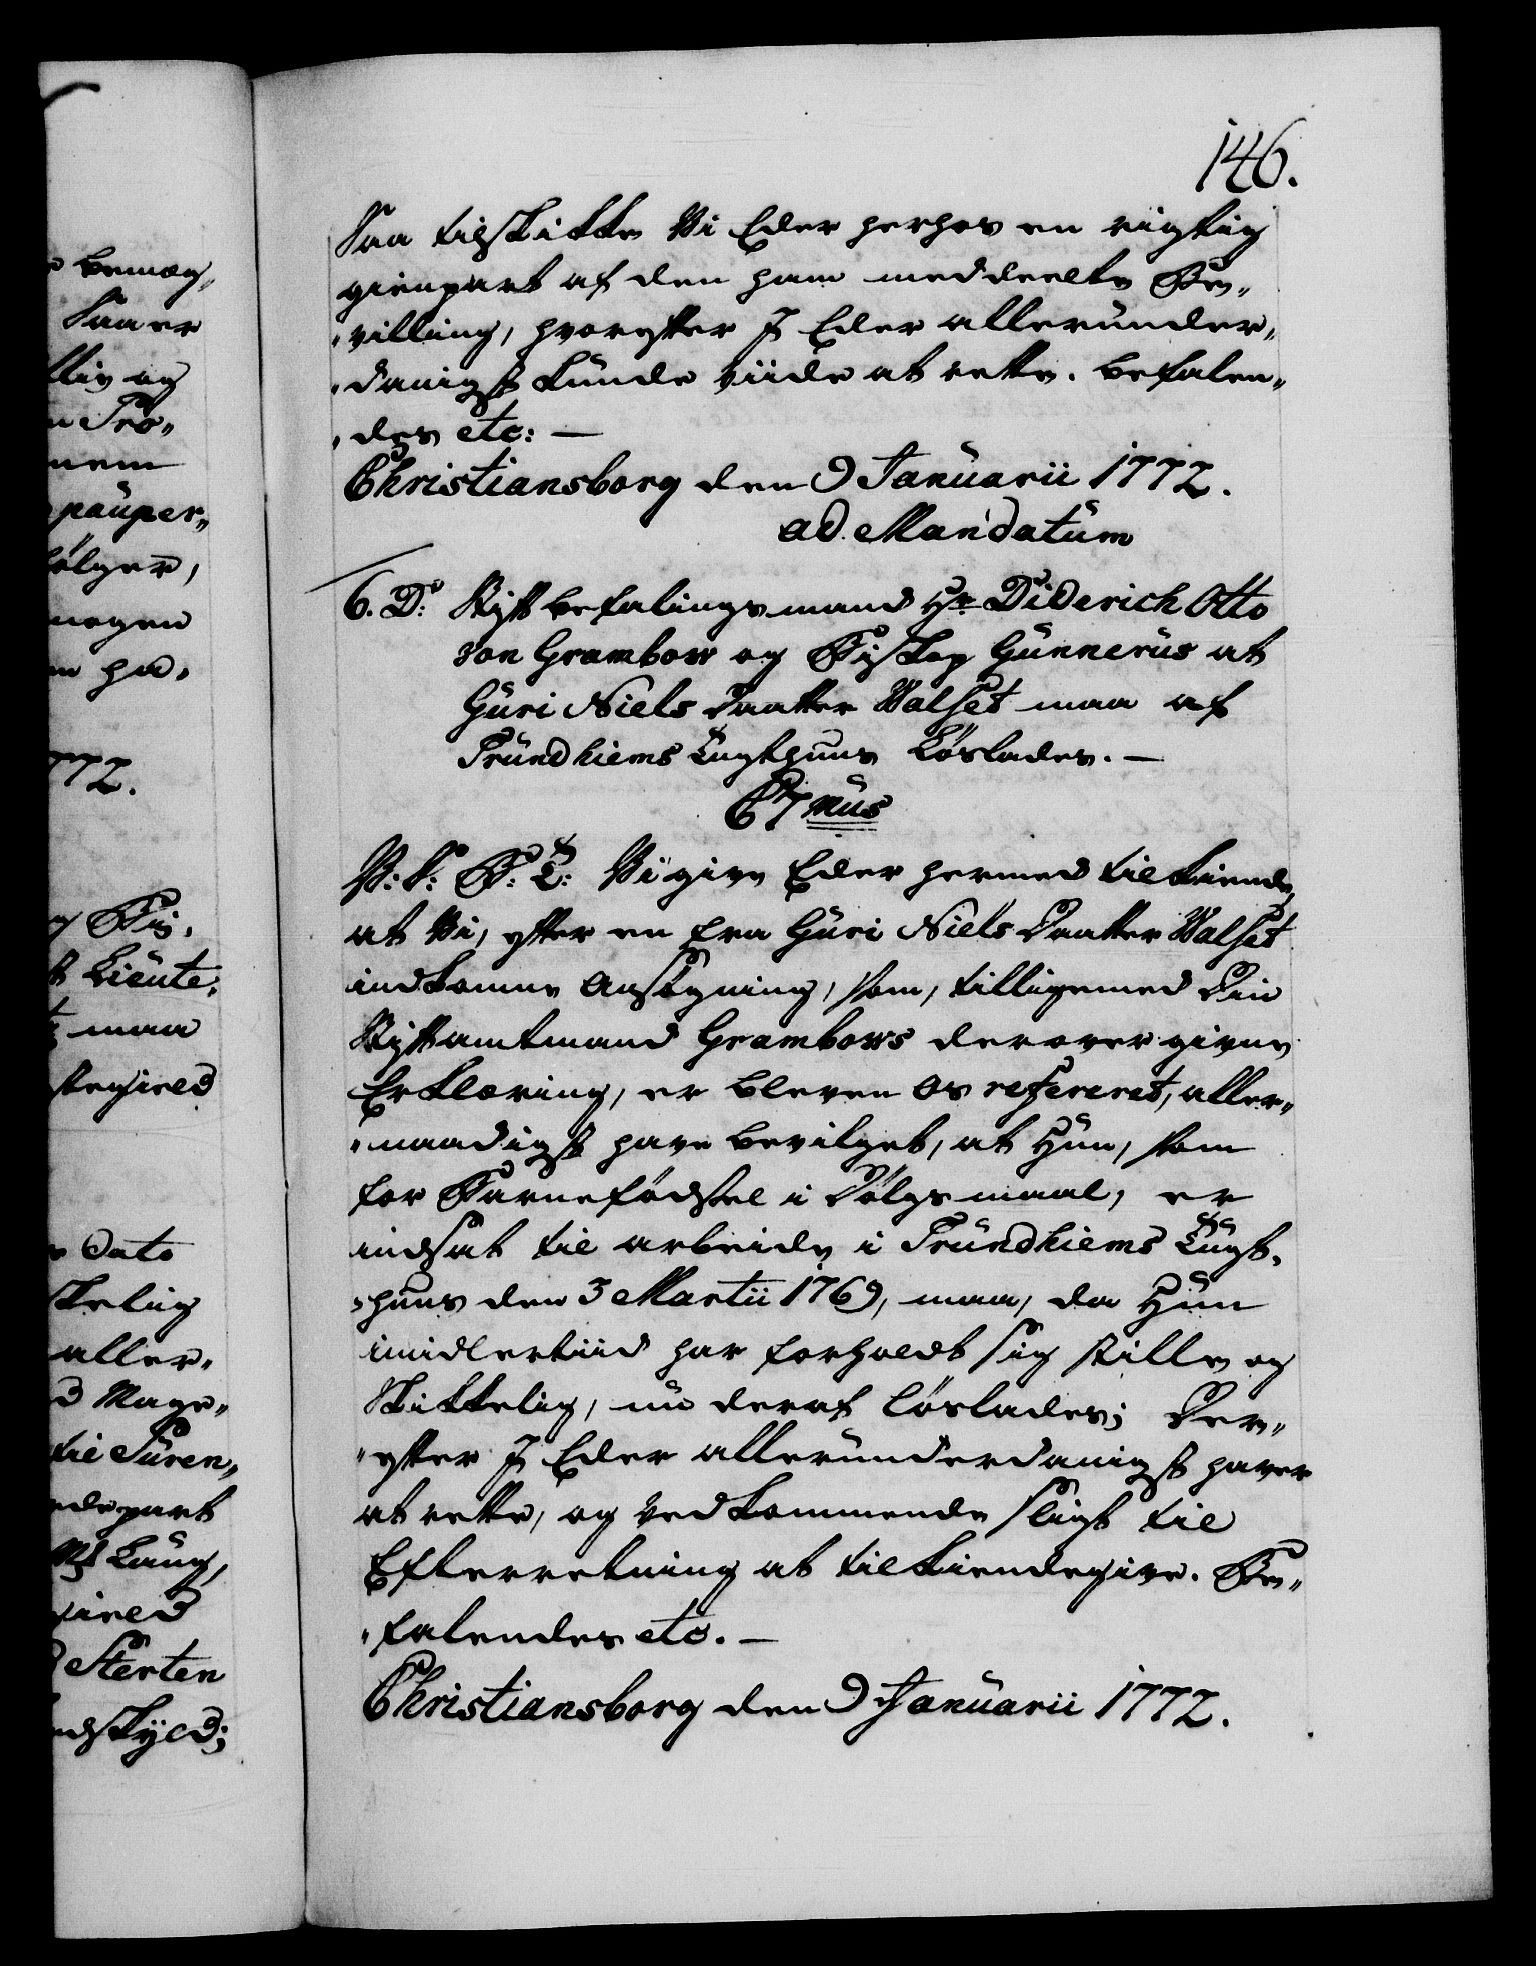 146.
Saa tilskikke Vi Eder herhos en rigtig
gienpart af den ham meddeelte Be„
„villing, hvorefter I Eder allerunder„
„danigst kunde viide at rette. befalen„
„des etc: —
Christiansborg den 9 Januarii 1772.
ad Mandatum
6. D: Stiftbefalingsmand Hr Diderich Otto
von Grambow og Biskop Gunnerus at
Guri Niels Daatter Walset maa af
Trundhiems Tugthuus Løslades. —
C7mus
V: S: G: T: Vi give Eder hermed tilkiende,
at Vi, efter en fra Guri Niels Daatter Walset
indkomne Ansøgning, som, tilligemed Din
Stiftamtmand Grambows derover givne
Erklæring, er bleven Os refereret, aller„
„naadigst have bevilget, at Hun, som
for Barnefødsel i Dølgsmaal, er
indsat til arbeide i Trundhiems Tugt„
„huus den 3 Martii 1769, maa, da Hun
imidlertiid har forholdt sig stille og
skikkelig, nu deraf løslades; Der„
„efter I Eder allerunderdanigst haver
at rette, og Vedkommende sligt til
Efterretning at tilkiendegive. Be„
„falendes etc. —
Christiansborg den 9 Januarii 1772.